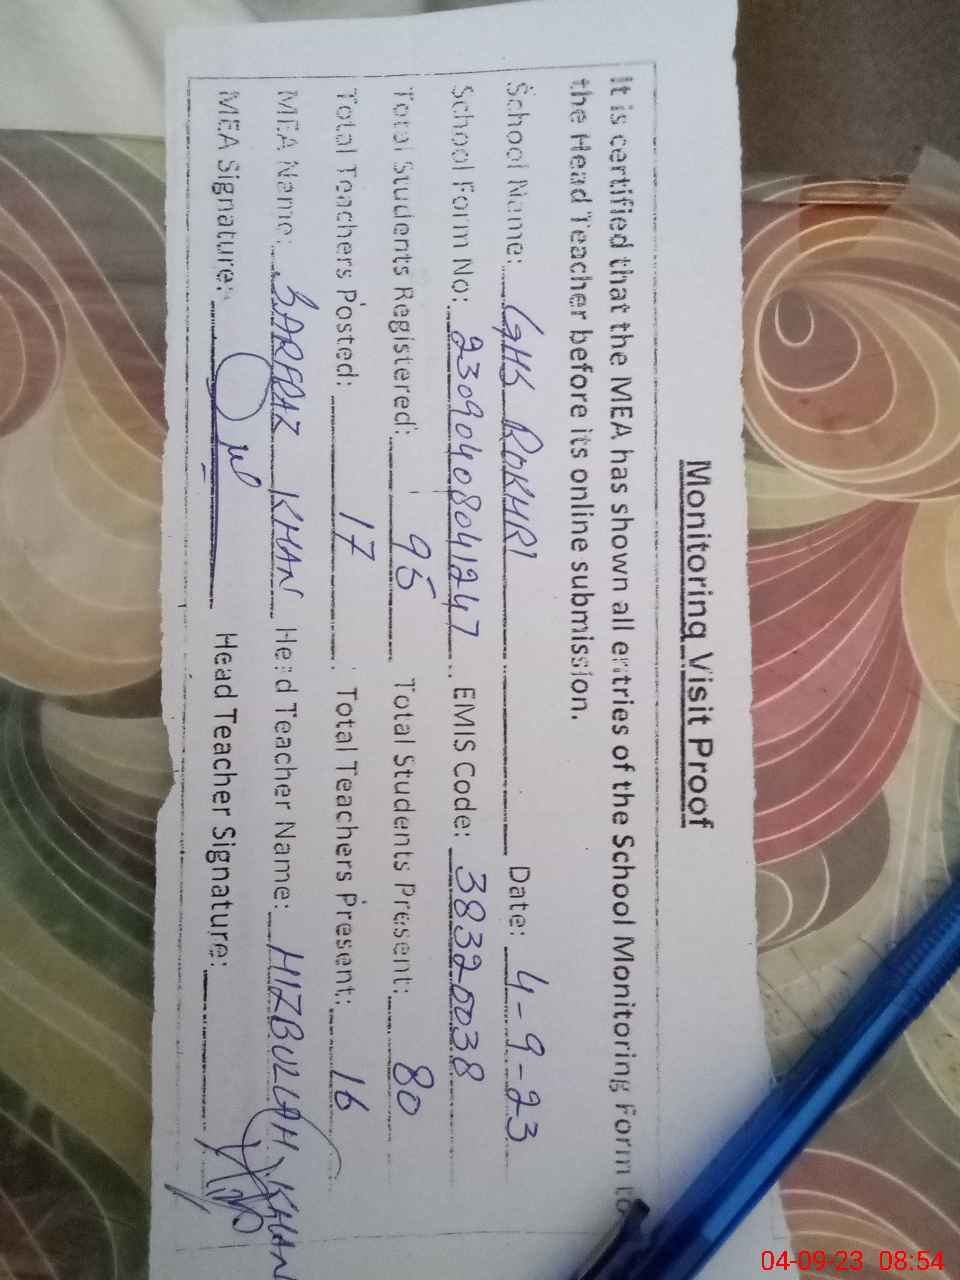 Monitoring Visit Proof
It is certified that the MEA has shown all entries of the School Monitoring Form to
the Head Teacher before its online submission.
School Name: GHS ROKHRI Date: 4-9-23
School Form No: 23090408041247 EMIS Code: 38320038
Total Students Registered: 95 Total Students Present: 80
Total Teachers Posted: 17 Total Teachers Present: 16
MEA Name: SARDAR KHAN Head Teacher Name: HIZBULLAH KHAN
MEA Signature: Head Teacher Signature:
04-09-23 08:54